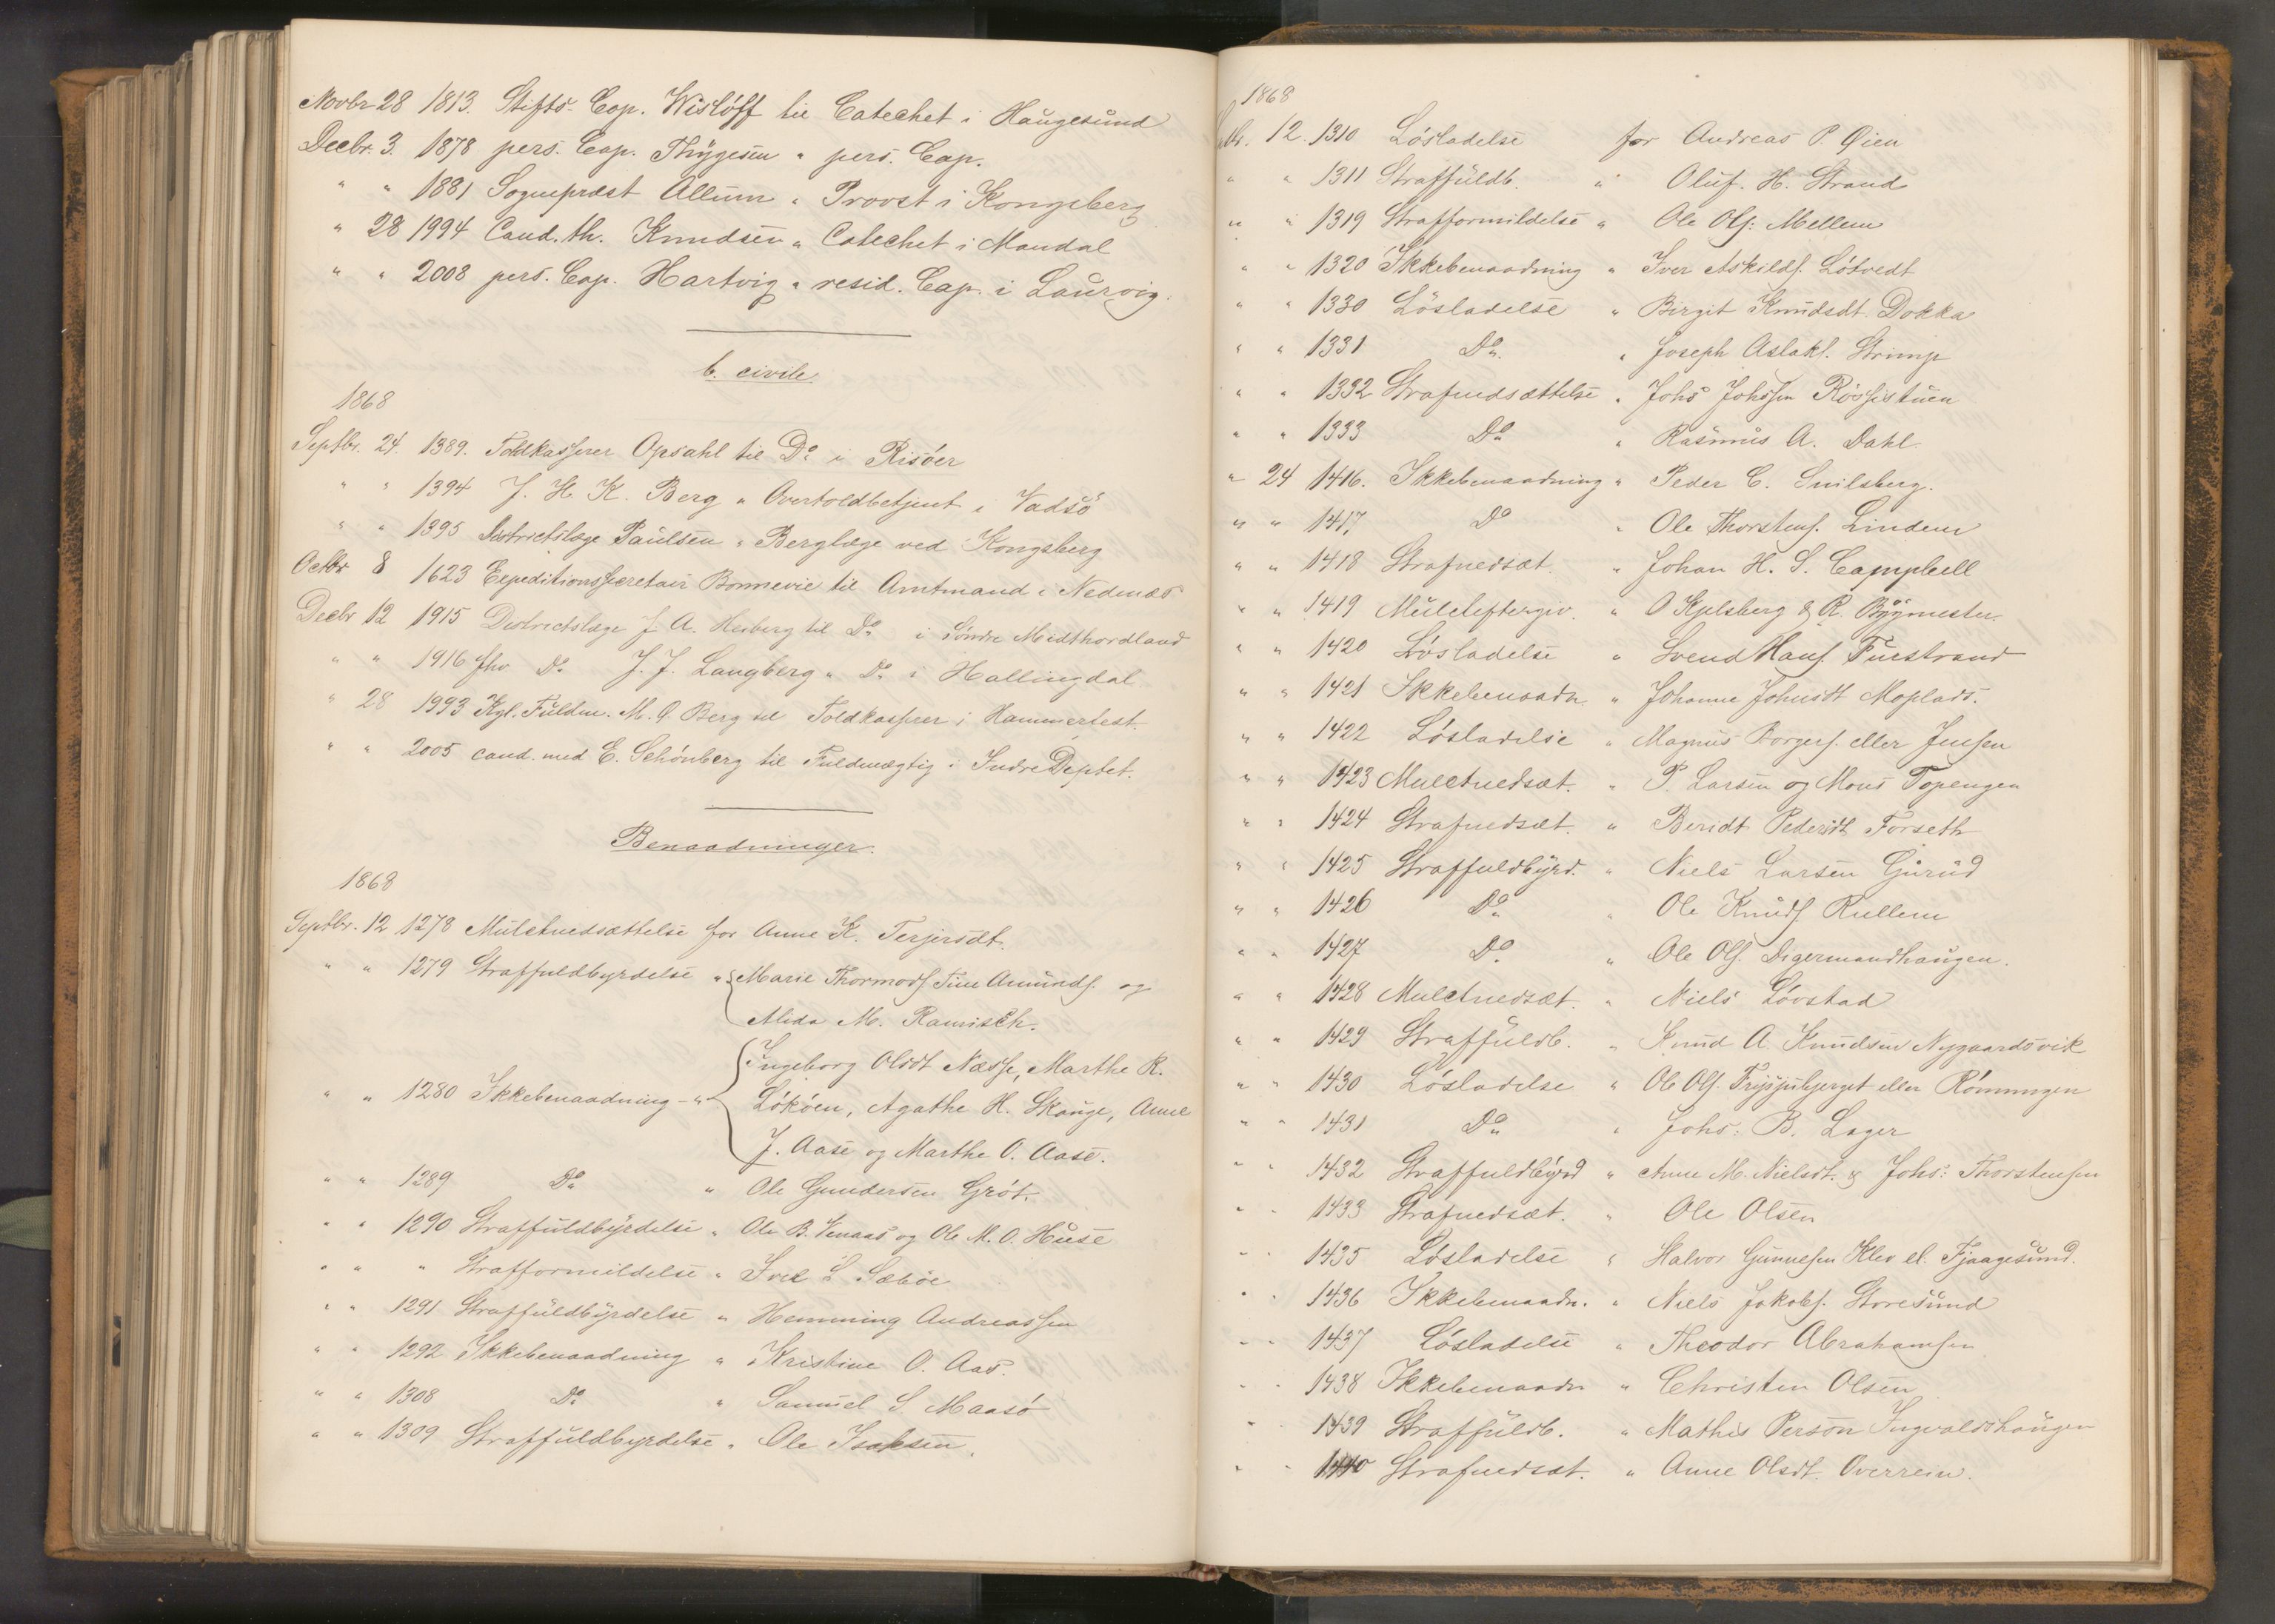 Novbr 28 1813. Stifts-Cap. Wisløff til Catechet i Haugesund
Decbr. 3. 1878 pers. Cap. Thygesen " pers. Cap.
" " 1881 Sognepræst Allum " Provst i Kongsberg
" 28 1994 Cand. th. Knudsen " Catechet i Mandal
" " 2008 pers. Cap. Hartvig " resid. Cap. i Laurvig.
b. civile
1868
Septbr. 24. 1389. Toldkasserer Opsahl til Do i Risøer
" " 1394 J. H. K. Berg " Overtoldbetjent i Vadsø
" " 1395 Districtslæge Paulsen " Berglæge ved Kongsberg
Octbr 8 1623 Expeditionssecretair Bonnevie til Amtmand i Nedenæs
Decbr 12 1915 Districtslæge J. A. Herberg til Do i Søndre Midthordland
" " 1916 fhv Do J. J. Langberg " Do i Hallingdal
" 28 1993 Kgl. Fuldm. M. G. Berg til Toldkasserer i Hammerfest.
" " 2005 cand. med E. Schönberg til Fuldmægtig i Indre Deptet.
Benaadninger.
1868
Septbr. 12 1278 Mulctnedsættelse for Anne K. Terjersdt.
" " 1279 Straffuldbyrdelse " Marie Thormods. Tine Amunds. og
Alida M. Ramisch.
Ingeborg Olsdt Næsse, Marthe R.
" " 1280 Ikkebenaadning - " Løkøen, Agathe H. Skauge, Anne
J. Aase og Marthe O. Aase.
" " 1289 Do " Ole Gundersen Grøt.
" " 1290 Straffuldbyrdelse " Ole B. Venaas og Ole M. O. Huse
" " " Strafformildelse " Iver L. Sæbøe
" " 1291 Straffuldbyrdelse " Hemming Andreassen
" " 1292 Ikkebenaadning " Kristine O. Aas.
" " 1308 Do " Samuel S. Maasø
" " 1309 Straffuldbyrdelse " Ole Isaksen.
1868
12. 1310 Løsladelse for Andreas P. Øien
" " 1311 Straffuldb. " Oluf. H. Strand
" " 1319 Strafformildelse " Ole Ols: Mellem
" " 1320 Ikkebenaadning " Iver Askilds. Løtvedt
" " 1330 Løsladelse " Birgit Knudsdt. Dokka
" " 1331 Do " Joseph Aslaks. Strimp
" " 1332 Strafnedsættelse " Johs Johssen Røssistuen
" " 1333 Do " Rasmus A. Dahl.
" 24 1416. Ikkebenaadning " Peder C. Snilsberg.
" " 1417. Do " Ole Thorstens. Lindem
" " 1418 Strafnedsæt. " Johan H. S. Campbell
" " 1419 Mulcteftergiv. " O Kylsberg & R. Bygmester.
" " 1420 Løsladelse " Svend Hans. Fuestrand
" " 1421 Ikkebenaadn " Johanne Johnsdt Moplads.
" " 1422 Løsladelse " Magnus Borgers. eller Jensen
" " 1423 Mulctnedsæt. " P. Larsen og Mons Topengen
" " 1424 Strafnedsæt. " Beridt Pedersdt Forseth
" " 1425 Straffuldbyrd. " Niels Larsen Gurud
" " 1426 Do " Ole Knuds. Rullem
" " 1427 Do " Ole Ols. Digermandhaugen.
" " 1428 Mulctnedsæt. " Niels Løvstad
" " 1429 Straffuldb. " Knud A. Knudsen Nygaardsvik
" " 1430 Løsladelse " Ole Ols. Trysjubjerget eller Rømungen
" " 1431 Do " Johs: B. Lager
" " 1432 Straffuldbyrd " Anne M. Nielsdt. & Johs: Thorstensen
" " 1433 Strafnedsæt. " Ole Olsen
" " 1435 Løsladelse " Halvor Gunnelsen Klev el. Fjaagesund.
" " 1436 Ikkebenaadn. " Niels Jakobs. Storesund
" " 1437 Løsladelse " Theodor Abrahamsen
" " 1438 Ikkebenaadn " Christen Olsen
" " 1439 Straffuldb. " Mathis Person Ingvaldshaugen
" " 1440 Strafnedsæt. " Anne Olsdt. Overrein.